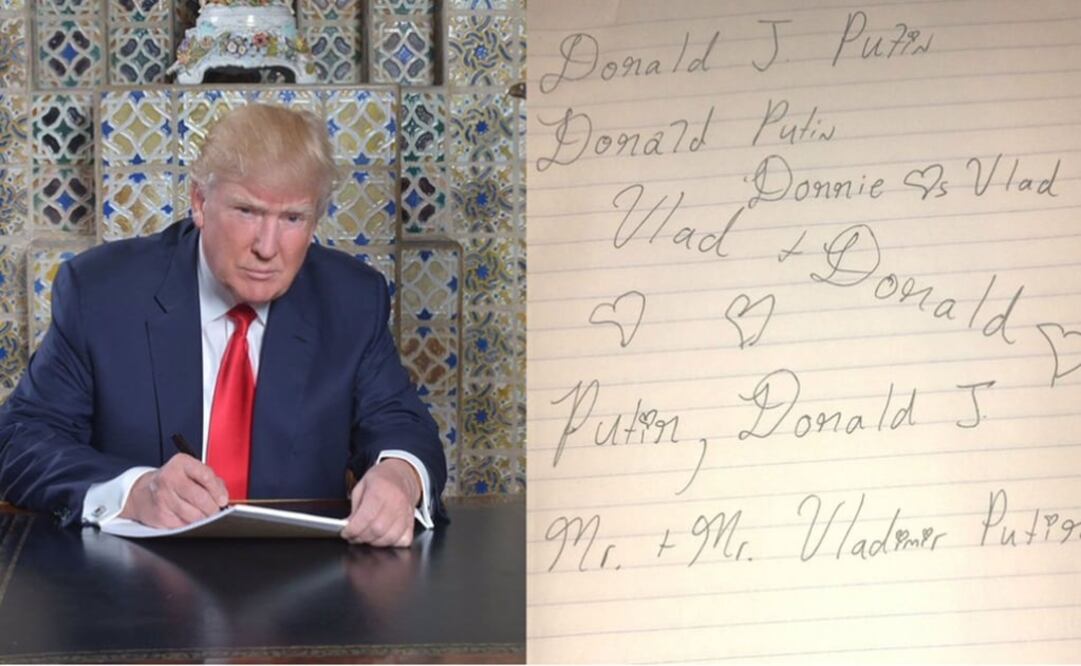 Donald J. Putin
Donald Putin
Donnie ♡s Vlad
Vlad + Donald
♡ ♡ ♡
Putin, Donald J.
Mr. + Mr. Vladimir Putin